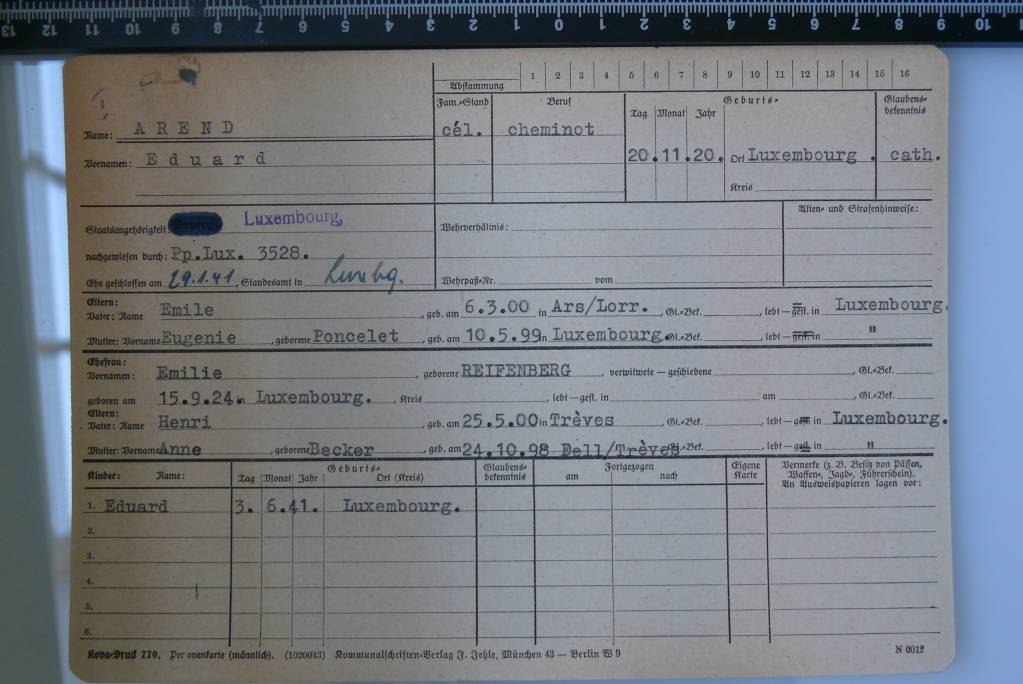 13 12 11 10 9 8 7 6 5 4 3 2 1 0 1 2 3 4 5 6 7 8 9 10
Abstammung 1 2 3 4 5 6 7 8 9 10 11 12 13 14 15 16
Fam.-Stand Beruf Geburts- Glaubens-
Tag Monat Jahr bekenntnis
Name: AREND cél. cheminot
Vornamen: Eduard 20.11.20. Ort Luxembourg. cath.
Kreis
Staatsangehörigkeit: Luxembourg. Wehrverhältnis: Akten- und Strafenhinweise:
nachgewiesen durch: Pp.Lux. 3528.
Ehe geschlossen am 29.1.41, Standesamt in Luxbg. Wehrpaß-Nr. vom
Eltern:
Vater: Name Emile, geb. am 6.3.00 in Ars/Lorr., Gl.-Bek., lebt — gest. in Luxembourg.
Mutter: Vorname Eugenie, geborene Poncelet, geb. am 10.5.99 in Luxembourg, Gl.-Bek., lebt — gest. in "
Ehefrau:
Vornamen: Emilie, geborene REIFENBERG, verwitwete — geschiedene, Gl.-Bek.
geboren am 15.9.24 in Luxembourg., Kreis, lebt — gest. in am, Gl.-Bek.
Eltern:
Vater: Name Henri, geb. am 25.5.00 in Trèves, Gl.-Bek., lebt — gest. in Luxembourg.
Mutter: Vorname Anne, geborene Becker, geb. am 24.10.98 Dell/Trèves, Gl.-Bek., lebt — gest. in "
Kinder: Name: Geburts- Tag Monat Jahr Ort (Kreis) Glaubens- bekenntnis Fortgezogen am nach Eigene Karte Vermerke (z. B. Besitz von Pässen, Waffen-, Jagd-, Führerschein). An Ausweispapieren lagen vor:
1. Eduard 3. 6.41. Luxembourg.
2.
3.
4.
5.
6.
Kova-Druck 770. Personenkarte (männlich). (1020643) Kommunalschriften-Verlag J. Jehle, München 43 — Berlin W 9 N 0012